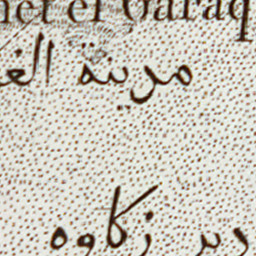 net el Garaq
مدينة الغ
دير زكاوه